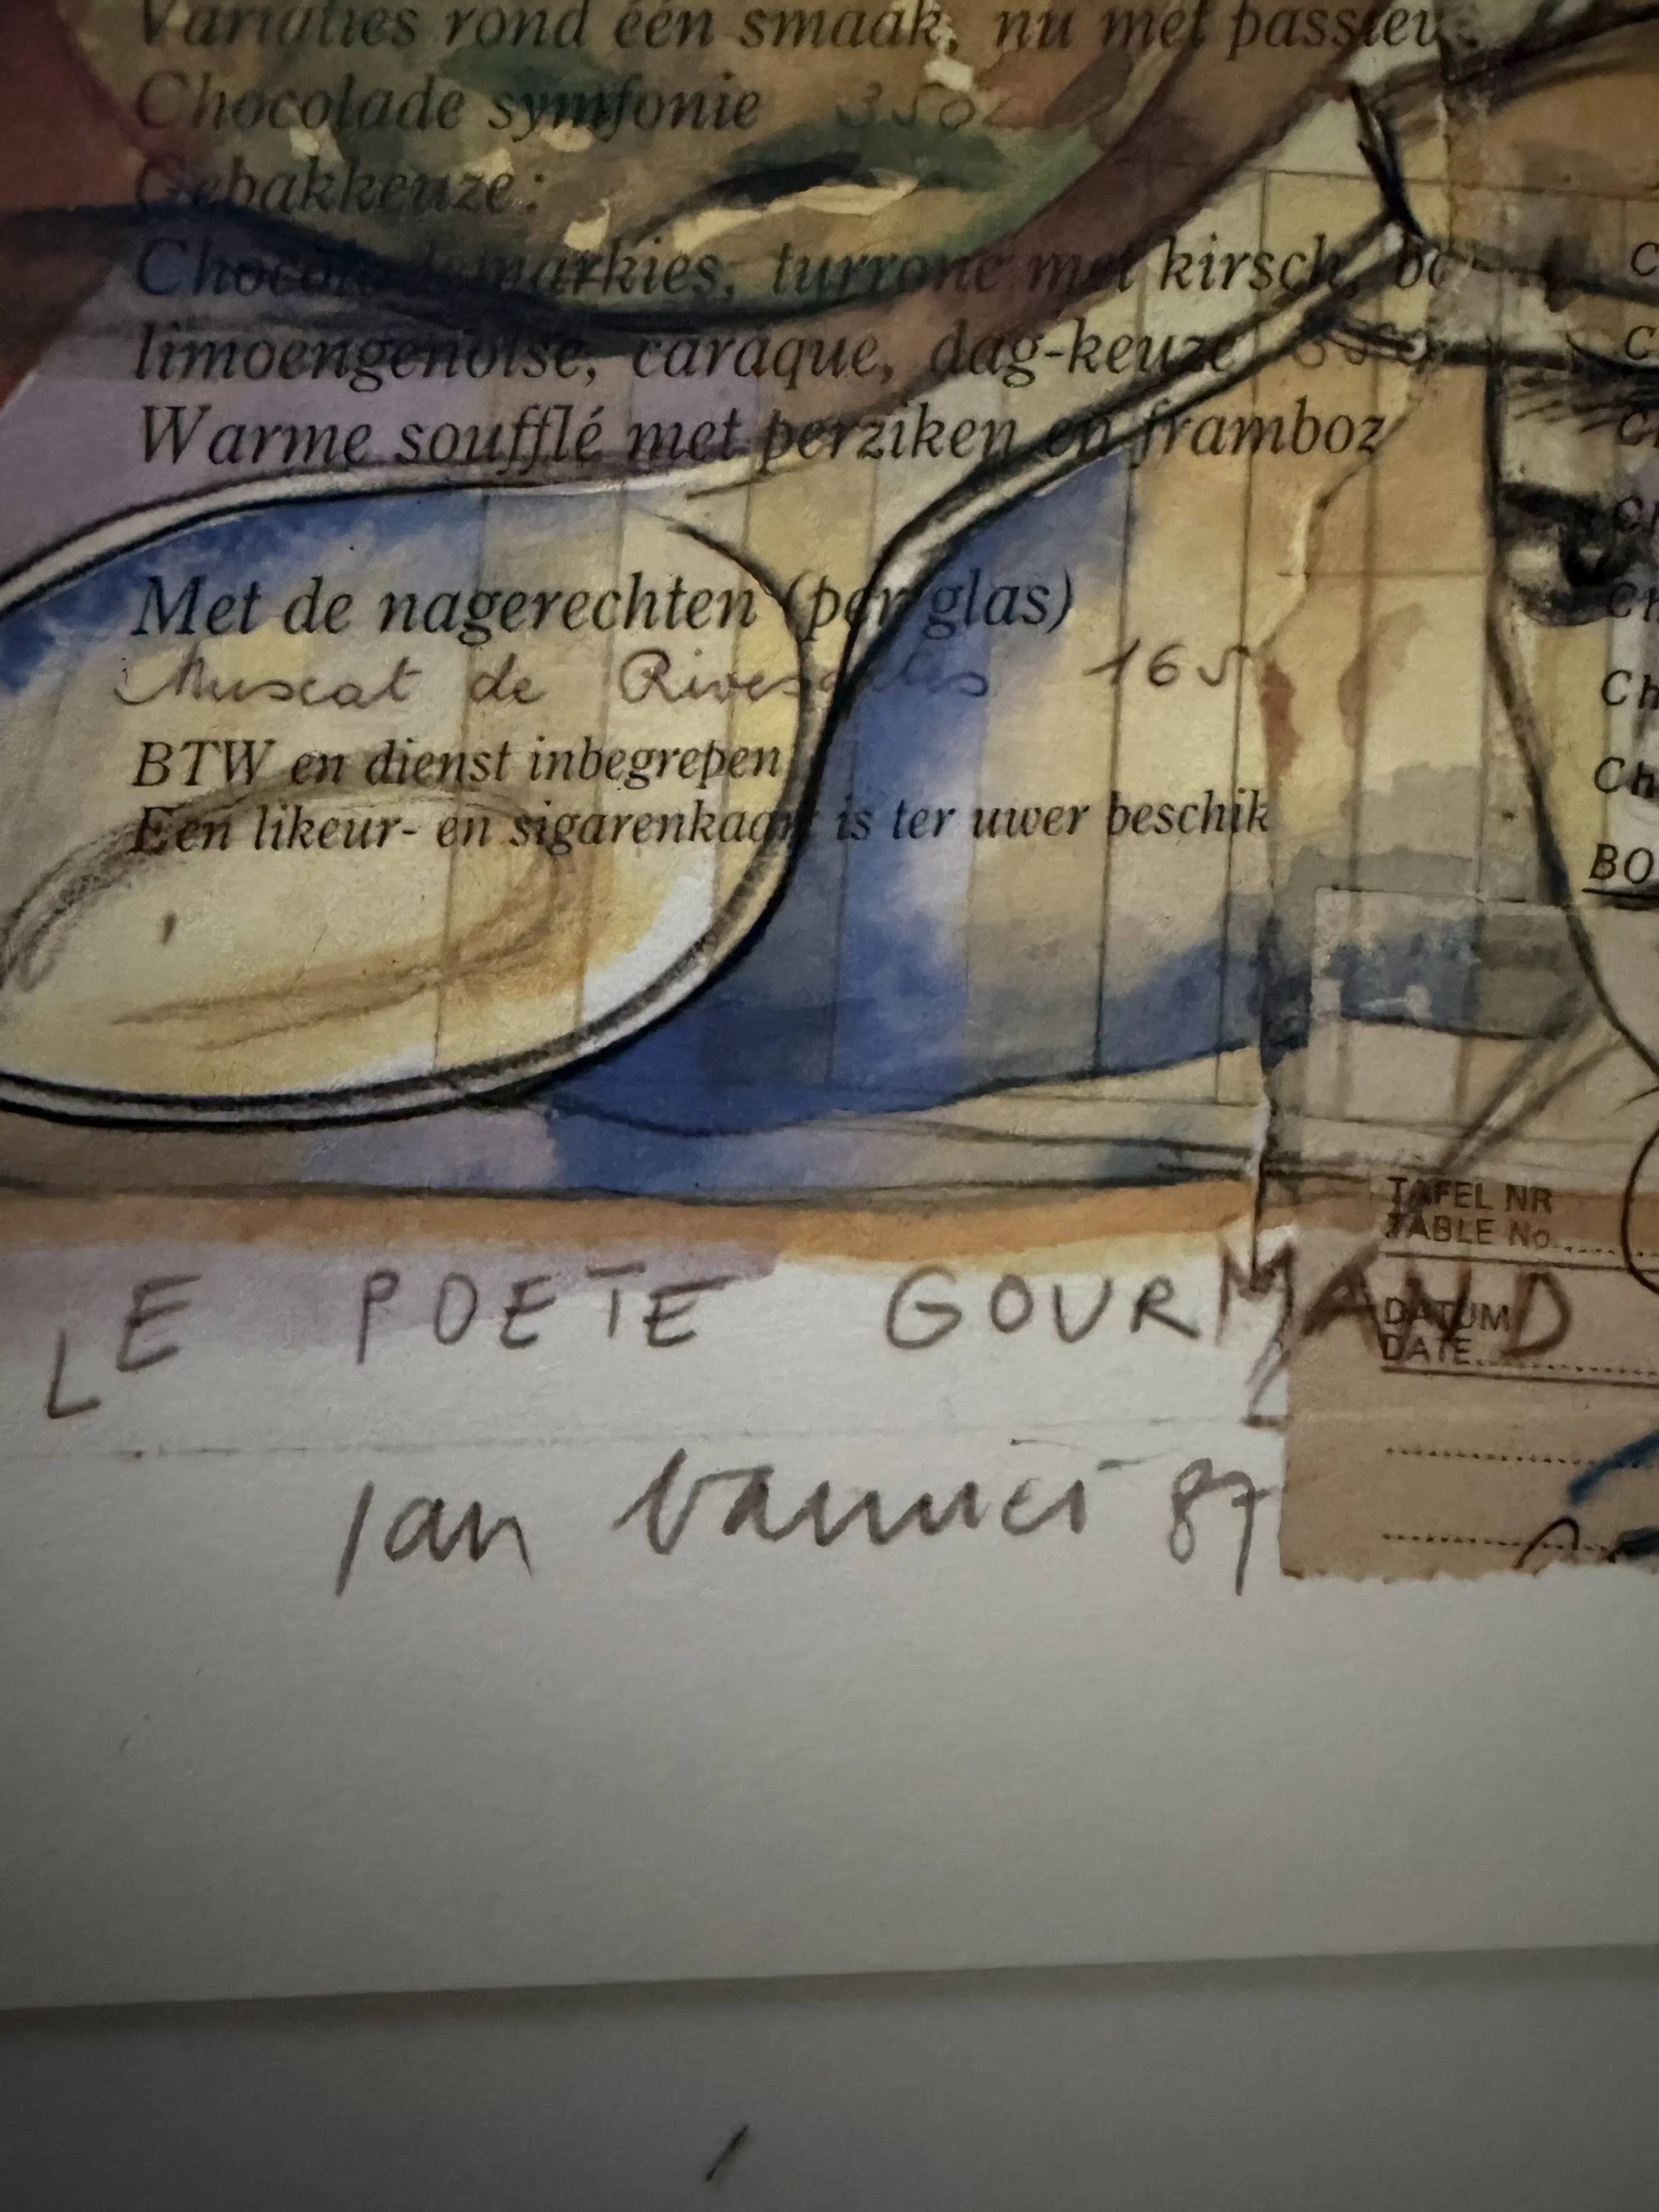 Variaties rond één smaak, nu met
Chocolade symfonie 350
Gebakkeuze:
turrone met kirsch,
limoengenoise, caraque, dag-keuze
Warme soufflé met perziken en framboz
Met de nagerechten (per glas)
Muscat de Rivesaltes 165
BTW en dienst inbegrepen
Een likeur- en sigarenkaart is ter uwer beschik
C
C
Ch
Ch
Ch
Ch
Ch
BO
TAFEL NR
TABLE No
LE POETE GOURMAND
DATUM
DATE
Jan 87